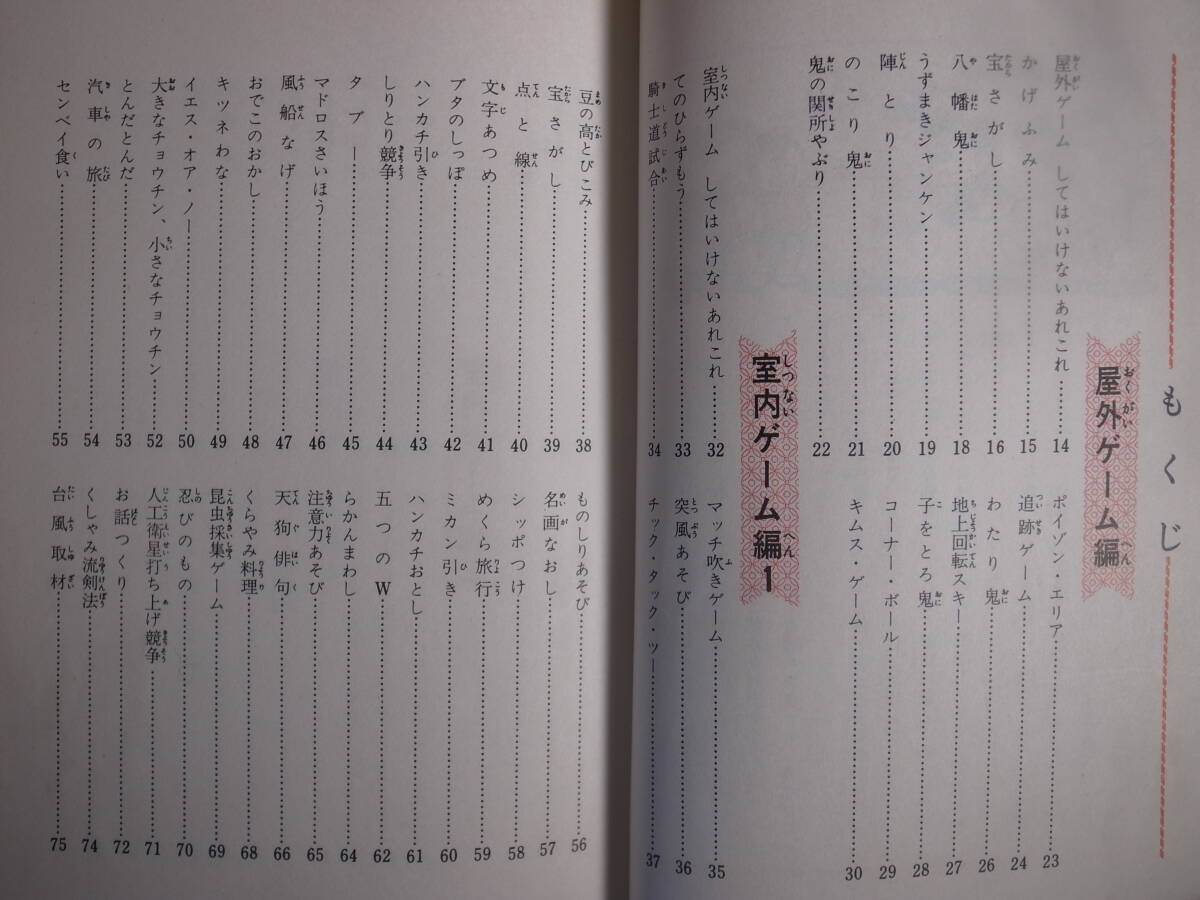 もくじ
屋外ゲーム編
屋外ゲーム してはいけないあれこれ……14
かげふみ……15
宝さがし……16
八幡鬼……18
うずまきジャンケン……19
陣とり……20
のこり鬼……21
鬼の関所やぶり……22
ポイゾン・エリア……23
追跡ゲーム……24
わたり鬼……26
地上回転スキー……27
子をとろ鬼……28
コーナー・ボール……29
キムス・ゲーム……30
室内ゲーム編1
室内ゲーム してはいけないあれこれ……32
てのひらずもう……33
騎士道試合……34
マッチ吹きゲーム……35
突風あそび……36
チック・タック・ツー……37
豆の高とびこみ……38
宝さがし……39
点と線……40
文字あつめ……41
ブタのしっぽ……42
ハンカチ引き……43
しりとり競争……44
タブー……45
マドロスさいほう……46
風船なげ……47
おでこのおかし……48
キツネわな……49
イエス・オア・ノー……50
大きなチョウチン、小さなチョウチン……52
とんだとんだ……53
汽車の旅……54
センベイ食い……55
ものしりあそび……56
名画なおし……57
シッポつけ……58
めくら旅行……59
ミカン引き……60
ハンカチおとし……61
五つのW……62
らかんまわし……64
注意力あそび……65
天狗俳句……66
くらやみ料理……68
昆虫採集ゲーム……69
忍びのもの……70
人工衛星打ち上げ競争……71
お話つくり……72
くしゃみ流剣法……74
台風取材……75